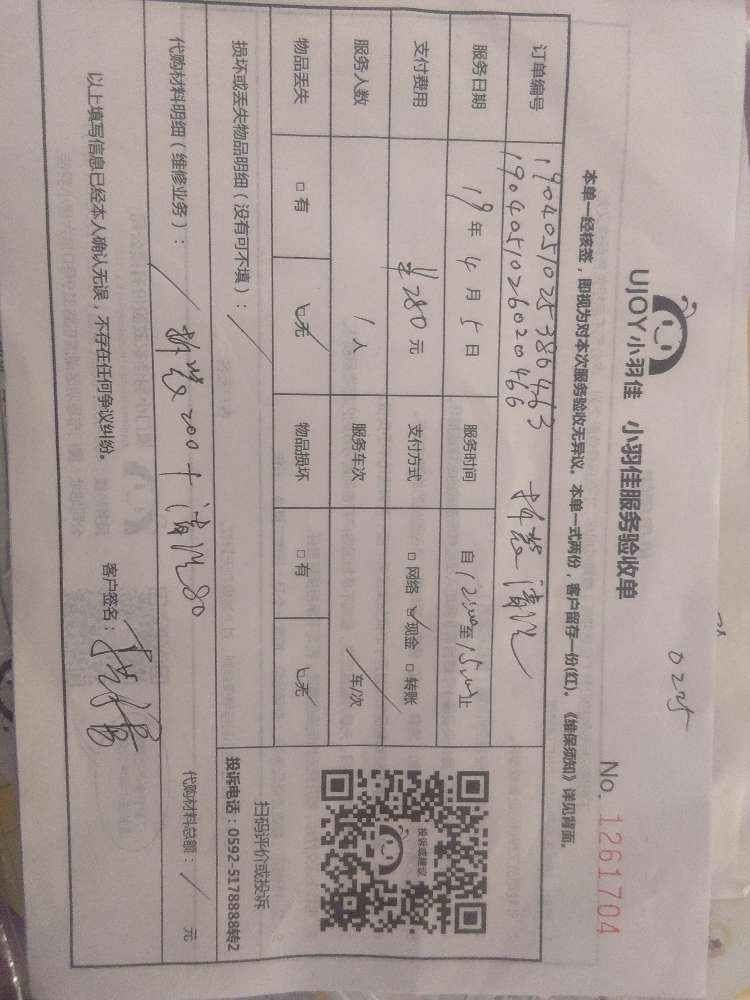 0225
UJOY小羽佳 小羽佳服务验收单
No. 1261704
本单一经核签，即视为对本次服务验收无异议。本单一式两份，客户留存一份(红)。《维保须知》详见背面。
订单编号 190405102538046３ 拆装清洗
1904051026020466
服务日期 19年4月5日 服务时间 自12:00至15:00止
支付费用 ¥280元 支付方式 □网络 ☑现金 □转账
服务人数 1人 服务车次 / 车/次
物品丢失 □有 ☑无 物品损坏 □有 ☑无
损坏或丢失物品明细（没有可不填）： /
代购材料明细（维修业务）： / 拆装200+清洗80
代购材料总额： / 元
投诉或建议
扫码评价或投诉
投诉电话：0592-5178888转2
以上填写信息已经本人确认无误，不存在任何争议纠纷。
客户签名：